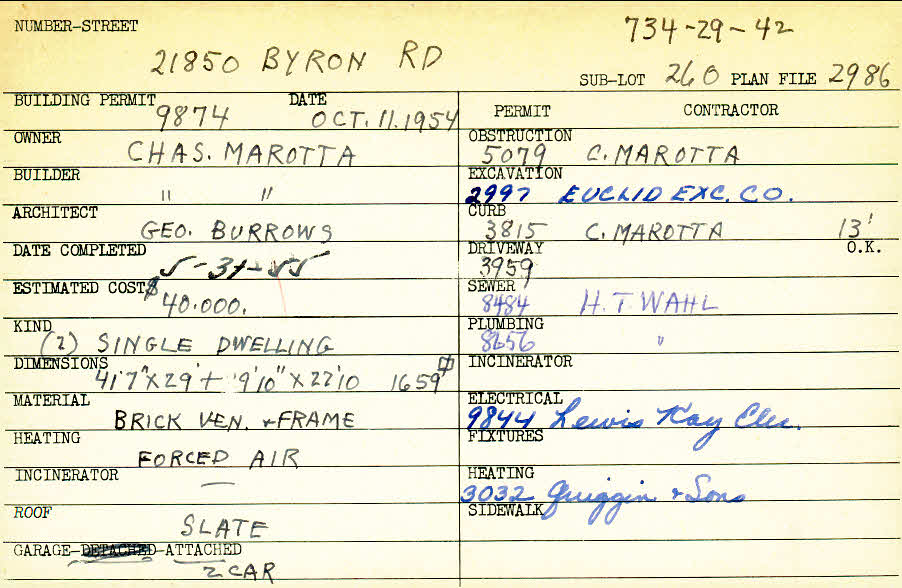 NUMBER-STREET
734-29-42
21850 BYRON RD
SUB-LOT 260 PLAN FILE 2986
BUILDING PERMIT DATE
9874 OCT. 11. 1954
OWNER
CHAS. MAROTTA
BUILDER
" "
ARCHITECT
GEO. BURROWS
DATE COMPLETED
5-31-55
ESTIMATED COST $
40.000.
KIND
(2) SINGLE DWELLING
DIMENSIONS
41'7" X 29' + 9'10" X 22'10 1659
MATERIAL
BRICK VEN. + FRAME
HEATING
FORCED AIR
INCINERATOR
—
ROOF
SLATE
GARAGE-DETACHED-ATTACHED
2 CAR
PERMIT CONTRACTOR
OBSTRUCTION
5079 C. MAROTTA
EXCAVATION
2997 EUCLID EXC. CO.
CURB
3815 C. MAROTTA 13'
DRIVEWAY O.K.
3959
SEWER
8484 H.T. WAHL
PLUMBING
8656 "
INCINERATOR
ELECTRICAL
9844 Lewis Kay Elec.
FIXTURES
HEATING
3032 Quiggin & Sons
SIDEWALK